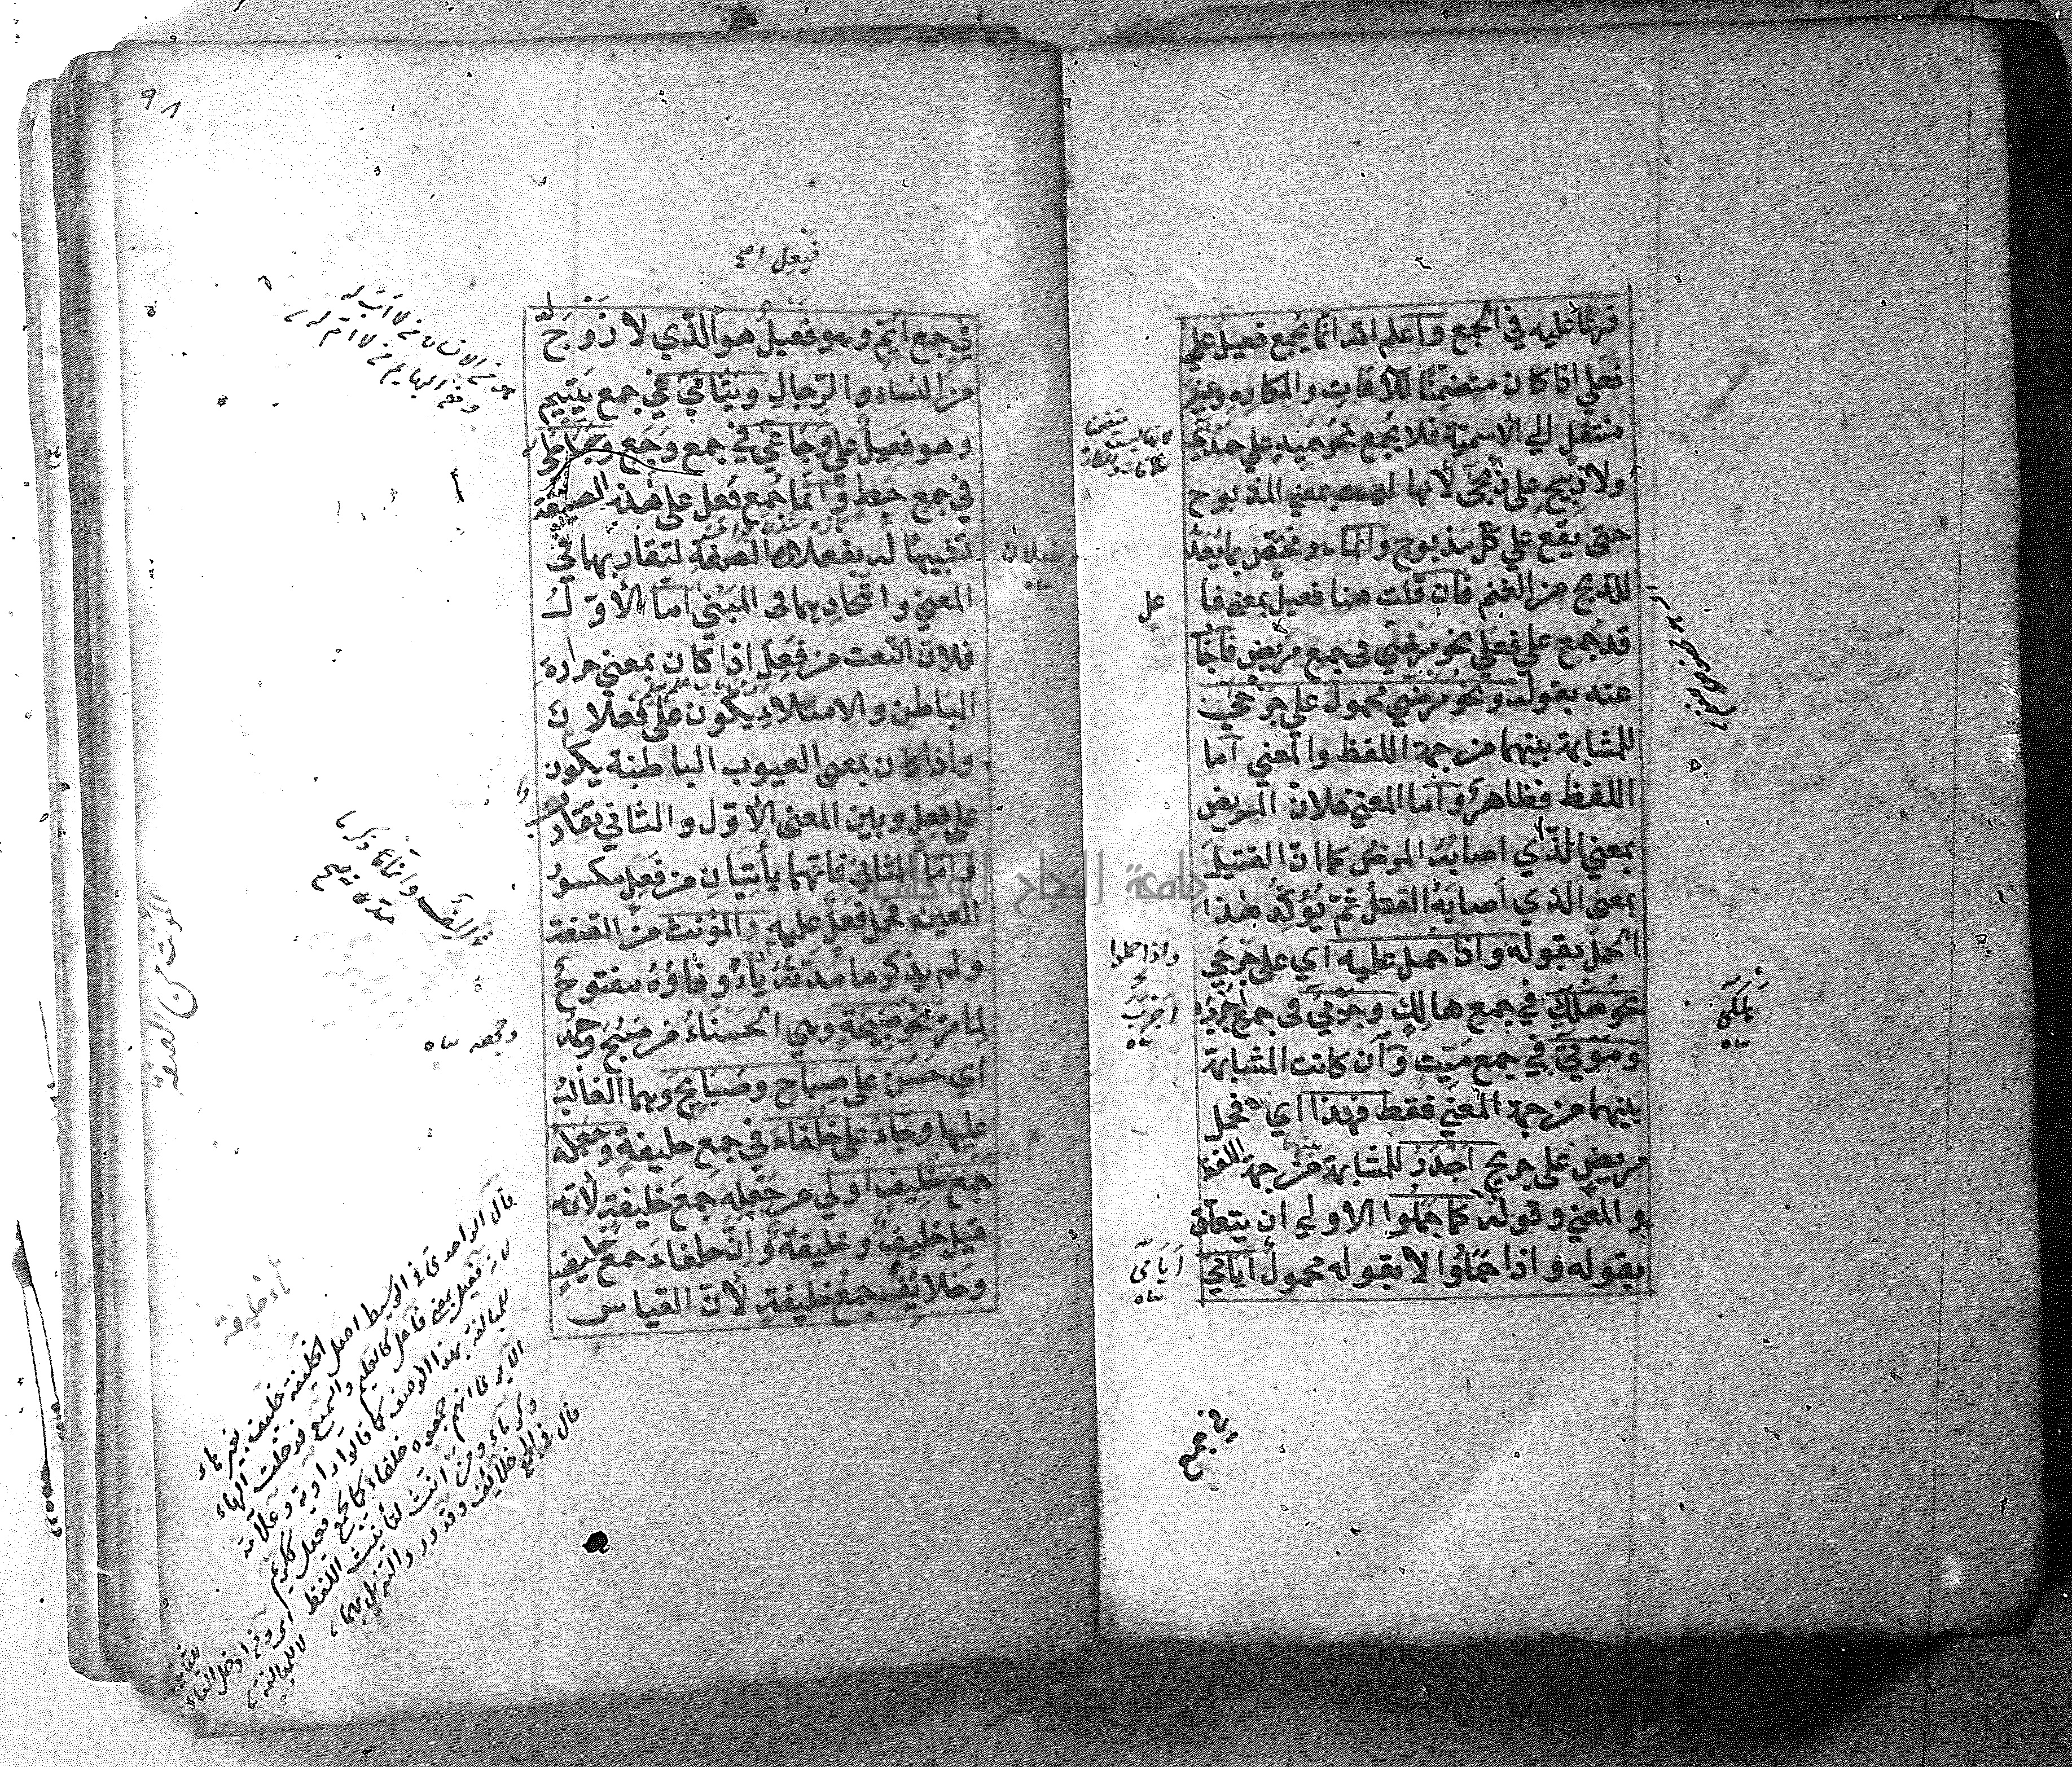 فرعا عليه في الجمع واعلم انه انما يجمع فعيل على
فعلى اذا كان متضمنا للآفات والمكاره وغير
منتقل الى الاسمية فلا يجمع نحو حميد على حمدى
ولا ذبيح على ذبحى لأنها ليست بمعنى المذبوح
حتى يقع على كل مذبوح وانما هو مختص بما يعد
للذبح من الغنم فان قلت هنا فعيل بمعنى فا
عل
قد جمع على فعلى نحو مرضى في جمع مريض فأجا
عنه بقوله ونحو مرضى محمول على جرحى
للمشابهة بينهما من جهة اللفظ والمعنى اما
اللفظ فظاهر وأما المعنى فلان المريض
بمعنى الذي اصابه المرض كما ان القتيل
بمعنى الذي أصابه القتل ثم يؤكد هذا
الحمل بقوله واذا حمل عليه اي على جرحى
نحو هلكى في جمع هالك وجربى في جمع أجرب
وموتى في جمع ميت وان كانت المشابهة
بينهما من جهة المعنى فقط فهذا اي فحمل
مريض على جريح اجدر للمشابهة من جهة اللفظ
والمعنى وقوله كما حملوا الاولى ان يتعلق
بقوله واذا حملوا لا بقوله محمول أيامى
واذا حملوا
اجرب
أيامى
في جمع
٩٨
فيعل اصح
في جمع ايم وهو فعيل هو الذي لا زوج له
من النساء والرجال ويتامى في جمع يتيم
وهو فعيل على وجاعى في جمع وجع وحباطى
في جمع حبط وانما جمع فعل على هذه الصيغة
تشبيها له بفعلان الصفة لتقاربهما في
المعنى واتحادهما في المبنى اما الأول
فلان النعت من فعل اذا كان بمعنى حرارة
الباطن والامتلاء يكون على فعلان
واذا كان بمعنى العيوب الباطنة يكون
على فعل وبين المعنى الأول والثاني تقارب
واما الثاني فانهما يأتيان من فعل مكسور
العين فحمل فعل عليه والمؤنث من الصفة
ولم يذكر ما مدته ياء وفاؤه مفتوح
لما مر نحو صبيحة وهي الحسناء من صبح وجهه
اي حسن على صباح وصبايح وهما الغالب
عليها وجاء على خلفاء في جمع خليفة وجعله
جمع خليف اولى من جعله جمع خليفة لأنه
قيل خليف وخليفة وان خلفاء جمع خليف
وخلائف جمع خليفة لأن القياس
بفعلان
المؤنث من الصفة
قال الواحدي في الوسيط اصل الخليفة خليف بغير هاء
لانه فعيل بمعنى فاعل كالعليم والسميع فدخلت الهاء
للمبالغة بهذا الوصف كما قالوا راوية وعلامة
الا يرى انهم جمعوه خلفاء كما يجمع فعيل ككريم
وكرماء ومن أنث لتأنيث اللفظ
قال في الجمع خلائف وقد ورد التنزيل بهما